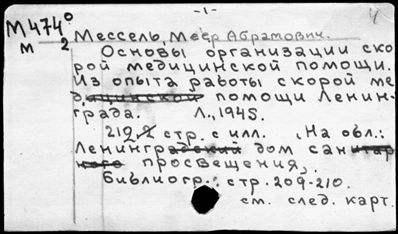 -1-
4
М474°
м 2
Мессель, Меер Абрамович.
Основы организации ско
рой медицинской помощи.
Из опыта работы скорой ме
дицинской помощи Ленин-
града. Л., 1945.
210,2 стр. с илл. На обл.:
Ленинградский дом санитар
ного просвещения,
библиогр.: стр. 209-210.
см. след. карт.